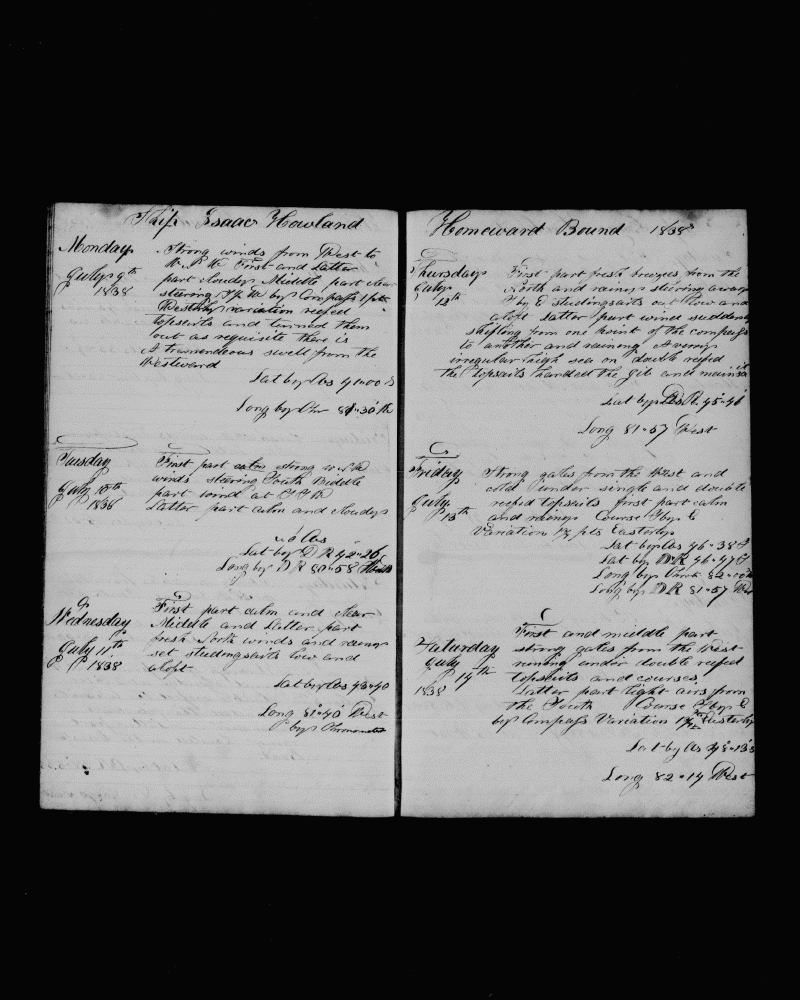 Ship Isaac Howland
Monday
July 9th
1838
Strong winds from West to
W.S.W First and Latter
part cloudy Middle part clear
steering by Compass
Westerly variation reefed
topsails and turned them
out as requisite there is
A tremendeous swell from the
Westward
Lat by Obs 41=00 S
Long by Chr 81=30
Tuesday
July 10th
1838
First part calm strong
winds steering South Middle
part wind at
Latter part calm and cloudy
no Obs
Lat by D R 42=26
Long by D R 80=58 West
Wednesday
July 11th
1838
First part calm and clear
Middle and Latter part
fresh North winds and rainy
set studingsails low and
aloft
Lat by Obs 43=40
Long 81=40 West
by Chronometer
Homeward Bound 1838
Thursday
July
12th
First part fresh breezes from the
North and rainy steering away
S by E studingsails out low and
aloft latter part wind suddenly
shifting from one point of the compass
to another and raining A very
irregular high sea on double reefed
the topsails handed the jib and mainsail
Lat by D R 45=41
Long 81=57 West
Friday
July
13th
Strong gales from the West and
cold under single and double
reefed topsails first part calm
and rainy Course S by E
Variation 1¾ pts Easterly
Lat by Obs 46=38 S
Lat by D R 46=47 S
Long by Chron 82=00
Long by D R 81=57 West
Saturday
July
14th
1838
First and middle part
strong gales from the West
running under double reefed
topsails and courses.
Latter part light airs from
the South Course S by E
by Compass Variation Easterly
Lat by Obs 48=13 S
Long 82=14 West